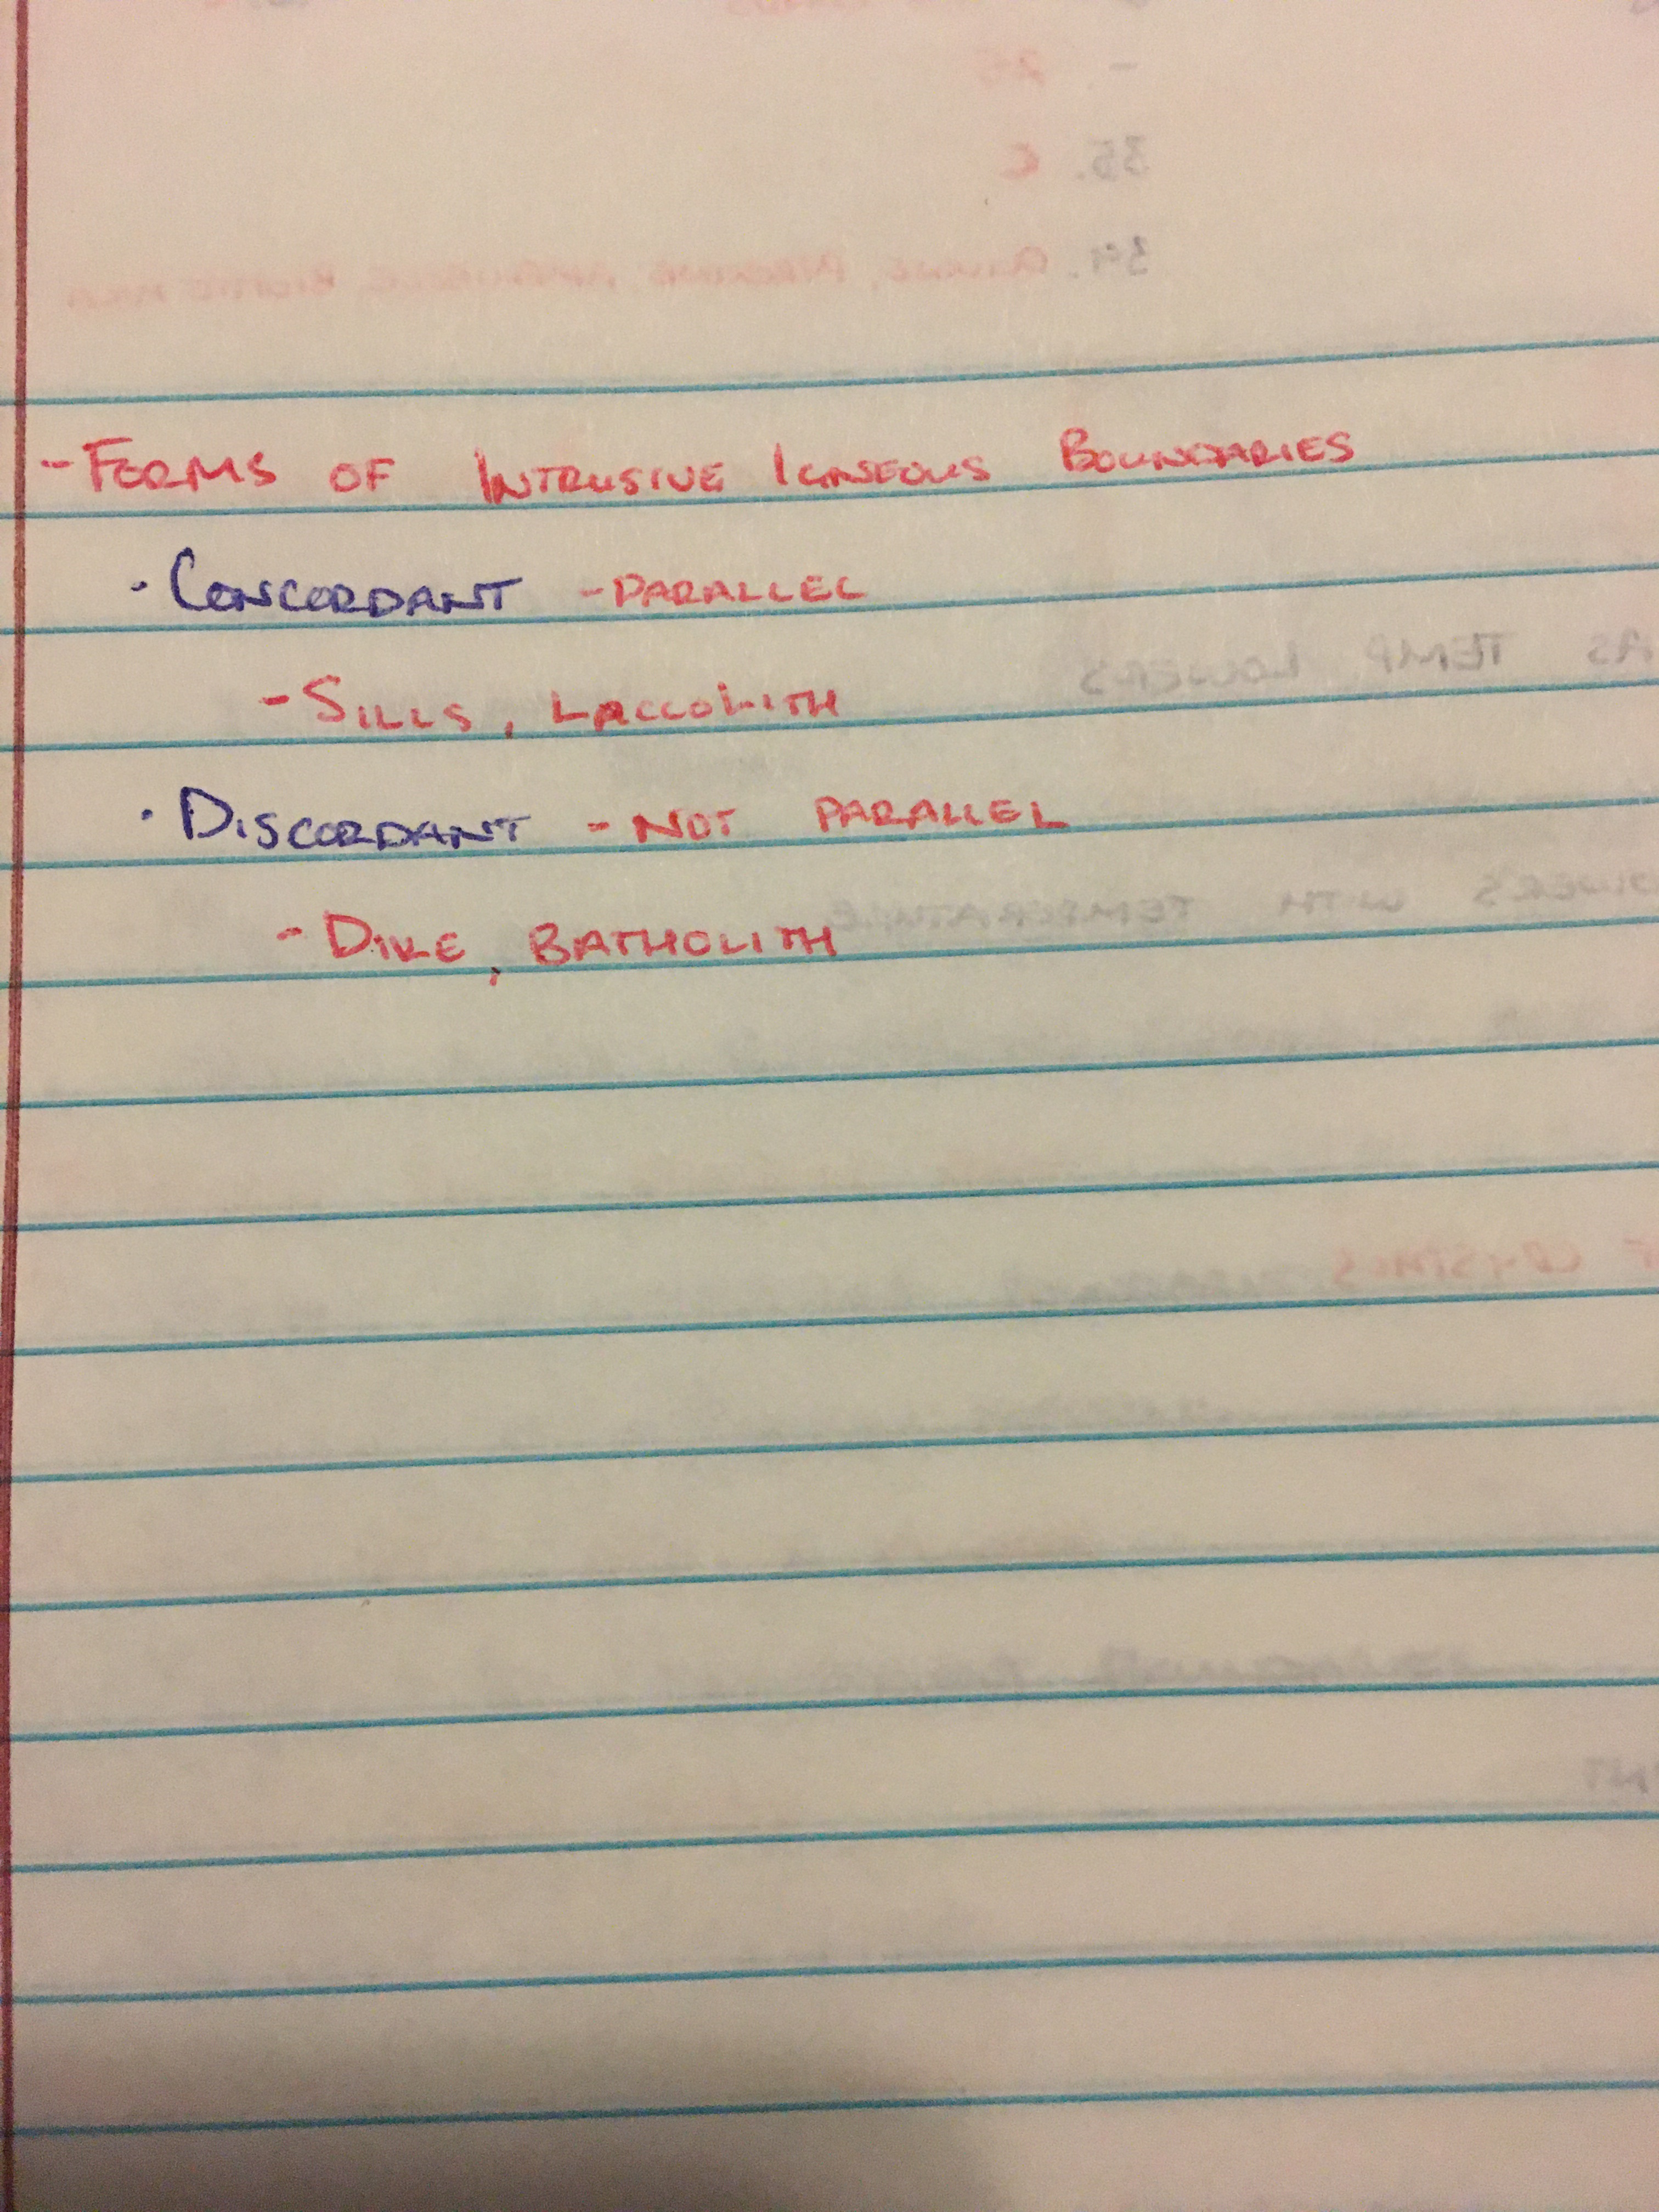 - FORMS OF INTRUSIVE IGNEOUS BOUNDARIES
· CONCORDANT - PARALLEL
- SILLS, LACCOLITH
· DISCORDANT - NOT PARALLEL
- DIKE, BATHOLITH